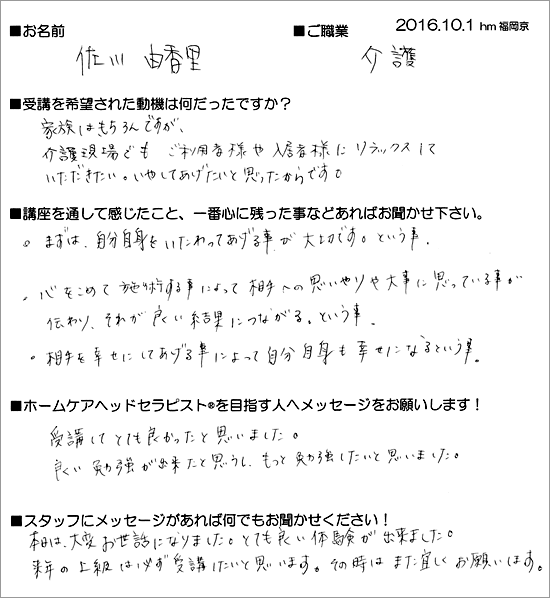 ■お名前 ■ご職業 2016.10.1 hm福岡京
佐川 由香里 介護
■受講を希望された動機は何だったですか？
家族はもちろんですが、
介護現場でも ご利用者様や入居者様に リラックスして
いただきたい。いやしてあげたいと思ったからです。
■講座を通して感じたこと、一番心に残った事などあればお聞かせ下さい。
。まずは、自分自身をいたわってあげる事が大切です。という事。
・心をこめて施術する事によって相手への思いやりや大事に思っている事が
伝わり、それが良い結果につながる。という事。
・相手を幸せにしてあげる事によって自分自身も幸せになるという事。
■ホームケアヘッドセラピスト®を目指す人へメッセージをお願いします！
受講してとても良かったと思いました。
良い勉強が出来たと思うし、もっと勉強したいと思いました。
■スタッフにメッセージがあれば何でもお聞かせください！
本日は、大変お世話になりました。とても良い体験が出来ました。
来年の上級は必ず受講したいと思います。その時はまた宜しくお願いします。